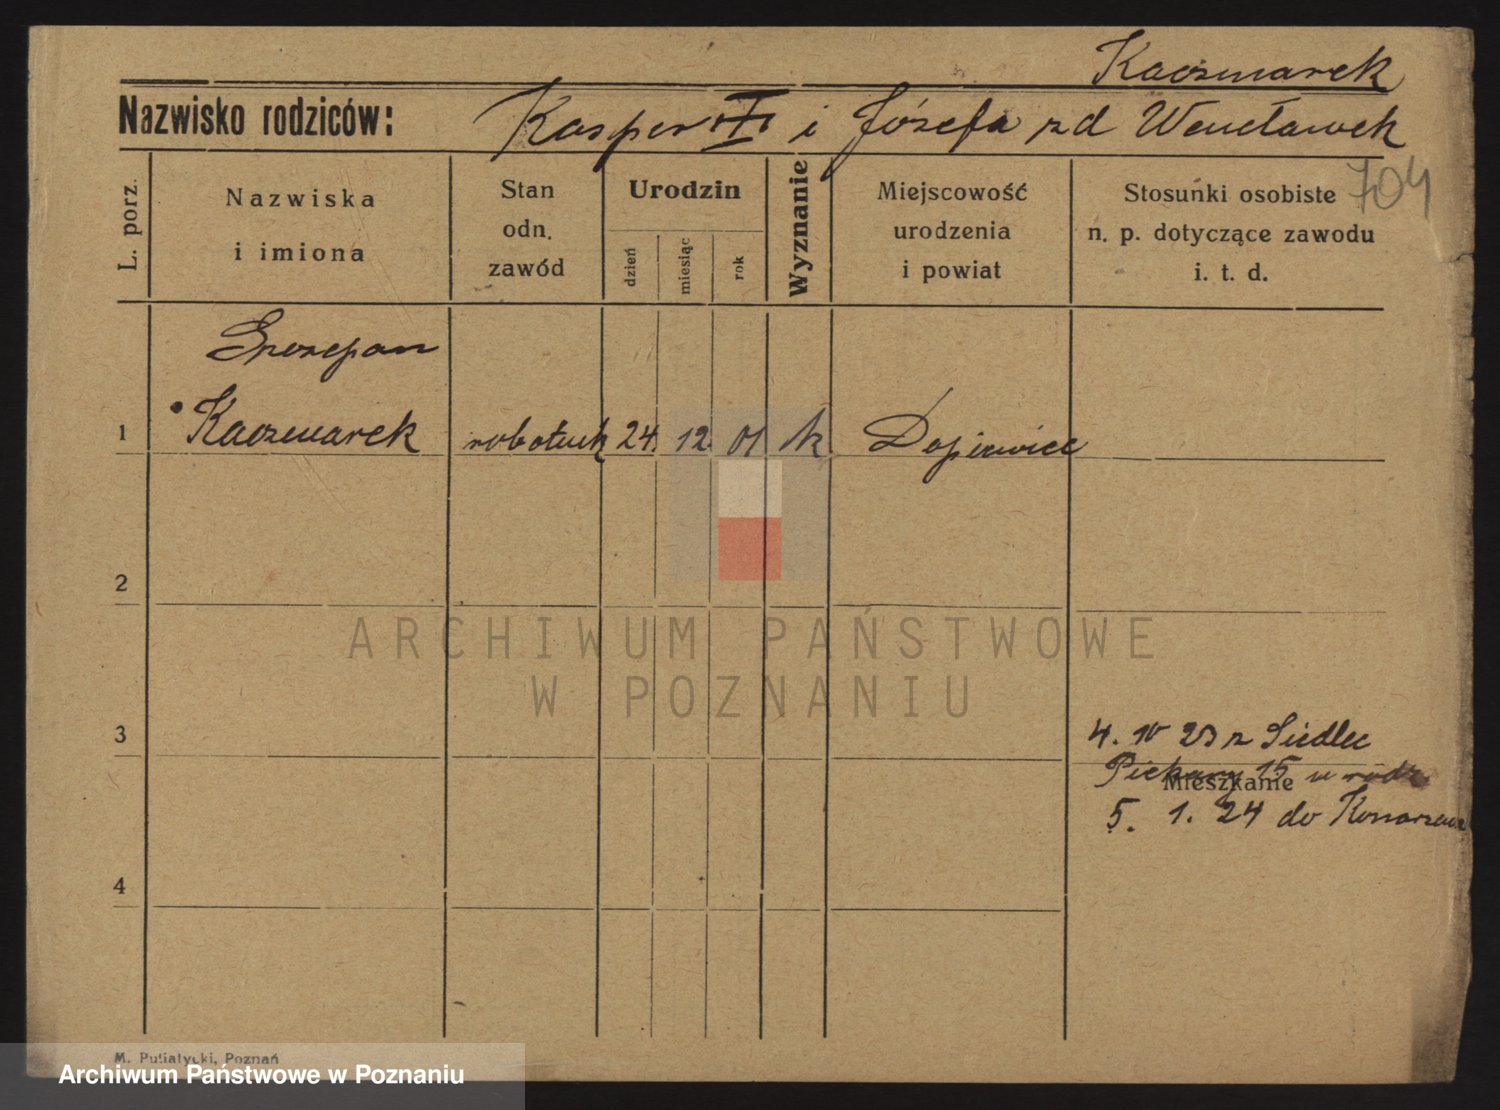 Kaczmarek
Nazwisko rodziców: Kasper i Józefa zd Wencławek
704
L. porz.
Nazwiska
i imiona
Stan
odn.
zawód
Urodzin
dzień
miesiąc
rok
Wyznanie
Miejscowość
urodzenia
i powiat
Stosunki osobiste
n. p. dotyczące zawodu
i. t. d.
Szczepan
1 Kaczmarek robotnik 24. 12. 01 k Dopiewiec
2
ARCHIWUM PAŃSTWOWE
W POZNANIU
3
4. IV 23 z Siedlec
Piekary 15 u rodz
Mieszkanie
5. 1. 24 do
4
M. Putiatycki, Poznań
Archiwum Państwowe w Poznaniu